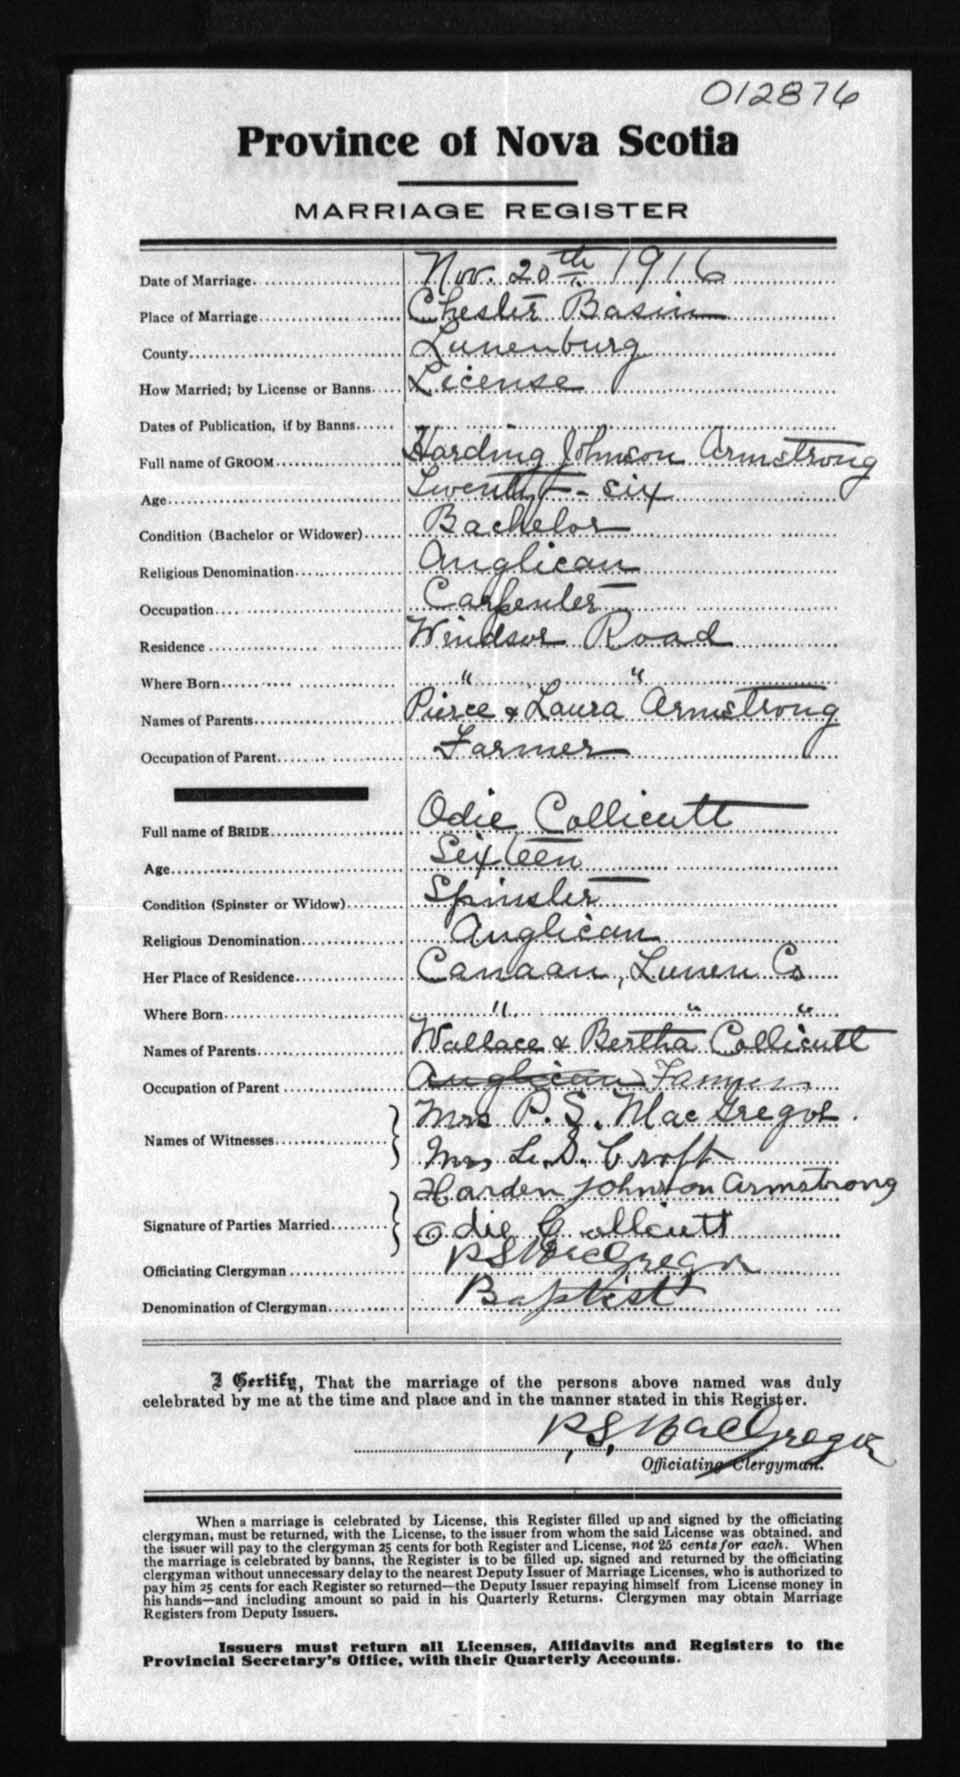 012876
Province of Nova Scotia
MARRIAGE REGISTER
Date of Marriage Nov. 20th 1916
Place of Marriage Chester Basin
County Lunenburg
How Married; by License or Banns License
Dates of Publication, if by Banns
Full name of GROOM Harding Johnson Armstrong
Age Twenty-six
Condition (Bachelor or Widower) Bachelor
Religious Denomination Anglican
Occupation Carpenter
Residence Windsor Road
Where Born " "
Names of Parents Pierce & Laura Armstrong
Occupation of Parent Farmer
Full name of BRIDE Odie Collicutt
Age Sixteen
Condition (Spinster or Widow) Spinster
Religious Denomination Anglican
Her Place of Residence Canaan, Lunen Co
Where Born " " "
Names of Parents Wallace & Bertha Collicutt
Occupation of Parent Anglican Farmer
Names of Witnesses Mrs P. S. MacGregor.
Mrs L. S. Croft
Signature of Parties Married Harden Johnson Armstrong
Odie Collcutt
Officiating Clergyman P S MacGregor
Denomination of Clergyman Baptist
I Certify, That the marriage of the persons above named was duly
celebrated by me at the time and place and in the manner stated in this Register.
P. S. MacGregor
Officiating Clergyman.
When a marriage is celebrated by License, this Register filled up and signed by the officiating
clergyman, must be returned, with the License, to the issuer from whom the said License was obtained, and
the issuer will pay to the clergyman 25 cents for both Register and License, not 25 cents for each. When
the marriage is celebrated by banns, the Register is to be filled up, signed and returned by the officiating
clergyman without unnecessary delay to the nearest Deputy Issuer of Marriage Licenses, who is authorized to
pay him 25 cents for each Register so returned—the Deputy Issuer repaying himself from License money in
his hands—and including amount so paid in his Quarterly Returns. Clergymen may obtain Marriage
Registers from Deputy Issuers.
Issuers must return all Licenses, Affidavits and Registers to the
Provincial Secretary's Office, with their Quarterly Accounts.